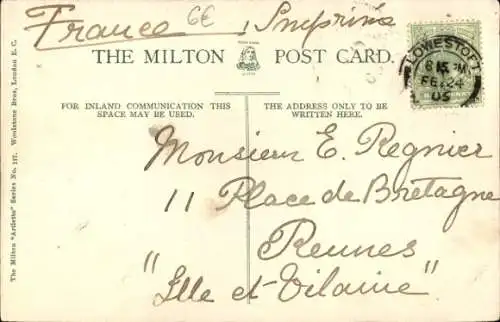 France 6€ Imprimé
THE MILTON POST CARD.
LOWESTOFT
6 15 PM
FE 24
05
FOR INLAND COMMUNICATION THIS
SPACE MAY BE USED.
THE ADDRESS ONLY TO BE
WRITTEN HERE.
Monsieur E. Regnier
11 Place de Bretagne
Rennes
"Ille et-Vilaine"
The Milton "Artlette" Series No. 137. Woolstone Bros, London E.C.